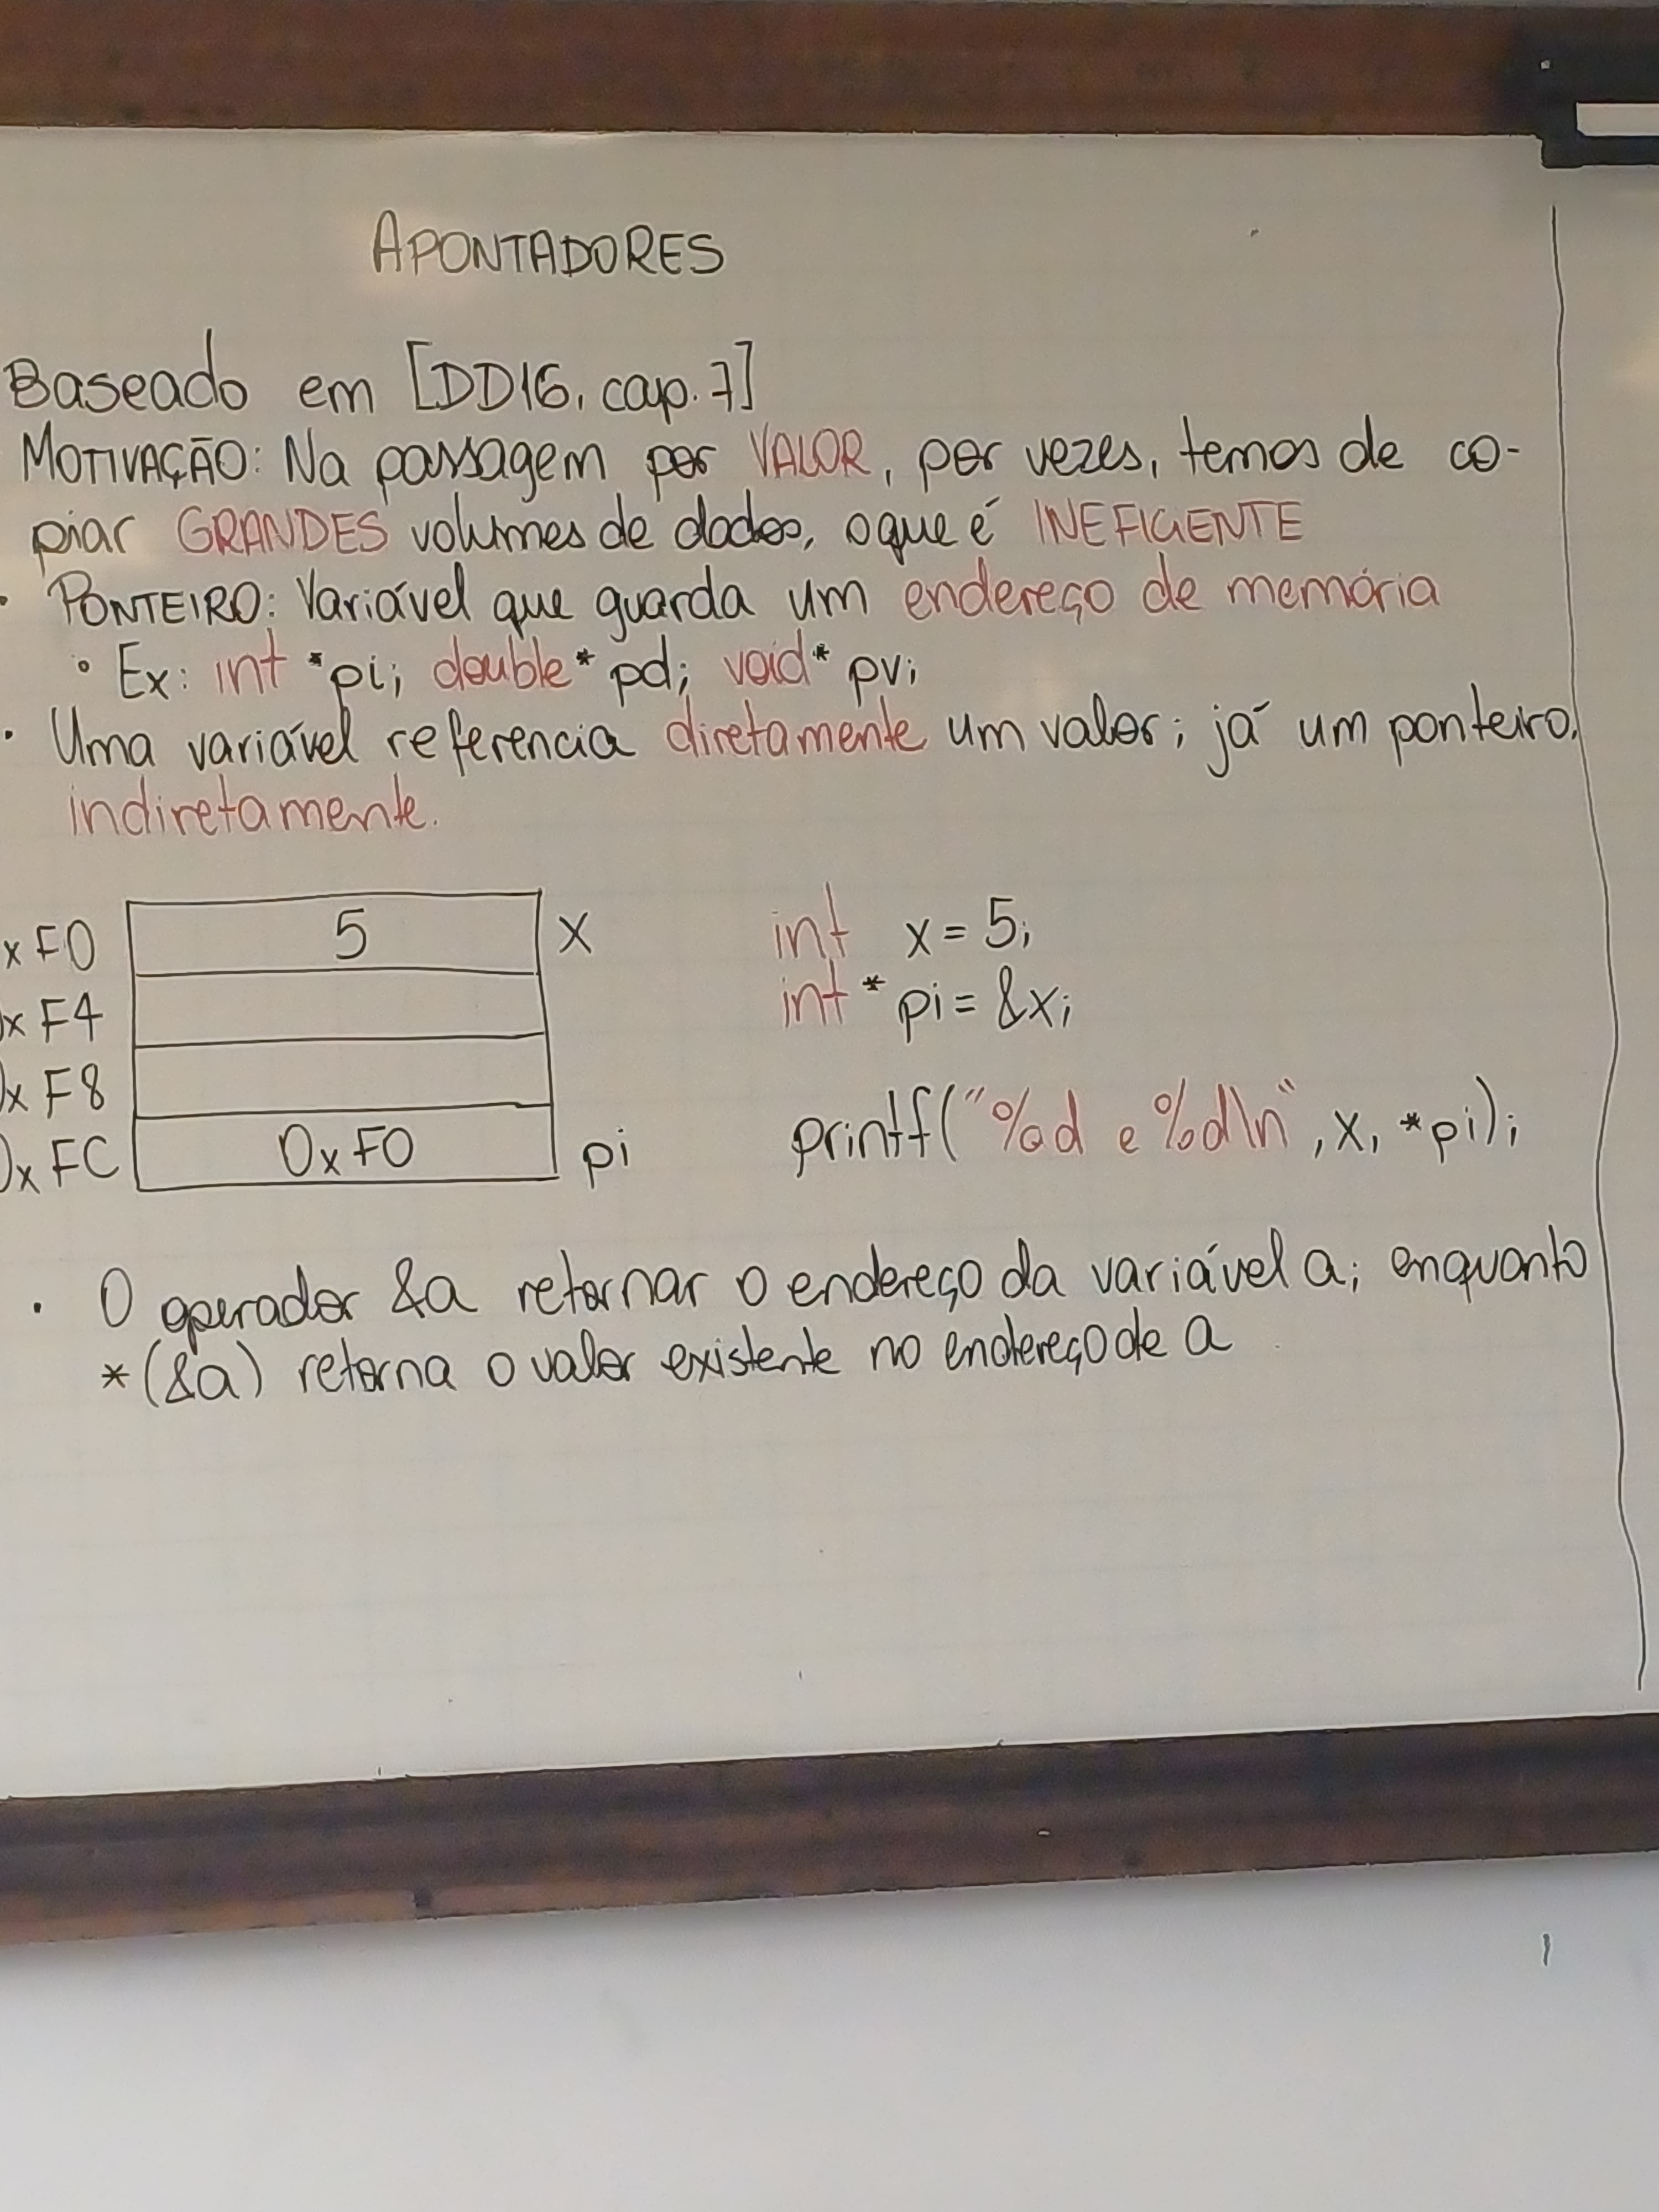 APONTADORES
Baseado em [DD16, cap. 7]
MOTIVAÇÃO: Na passagem por VALOR, por vezes, temos de co-
piar GRANDES volumes de dados, o que é INEFICIENTE
· PONTEIRO: Variável que guarda um endereço de memória
∘ Ex: int *pi; double* pd; void* pv;
· Uma variável referencia diretamente um valor; já um ponteiro,
indiretamente.
x F0 5 x int x = 5;
0x F4 int * pi = &x;
0x F8
0x FC 0x F0 pi printf("%d e %d\n", x, *pi);
· O operador &a retornar o endereço da variável a; enquanto
*(&a) retorna o valor existente no endereço de a